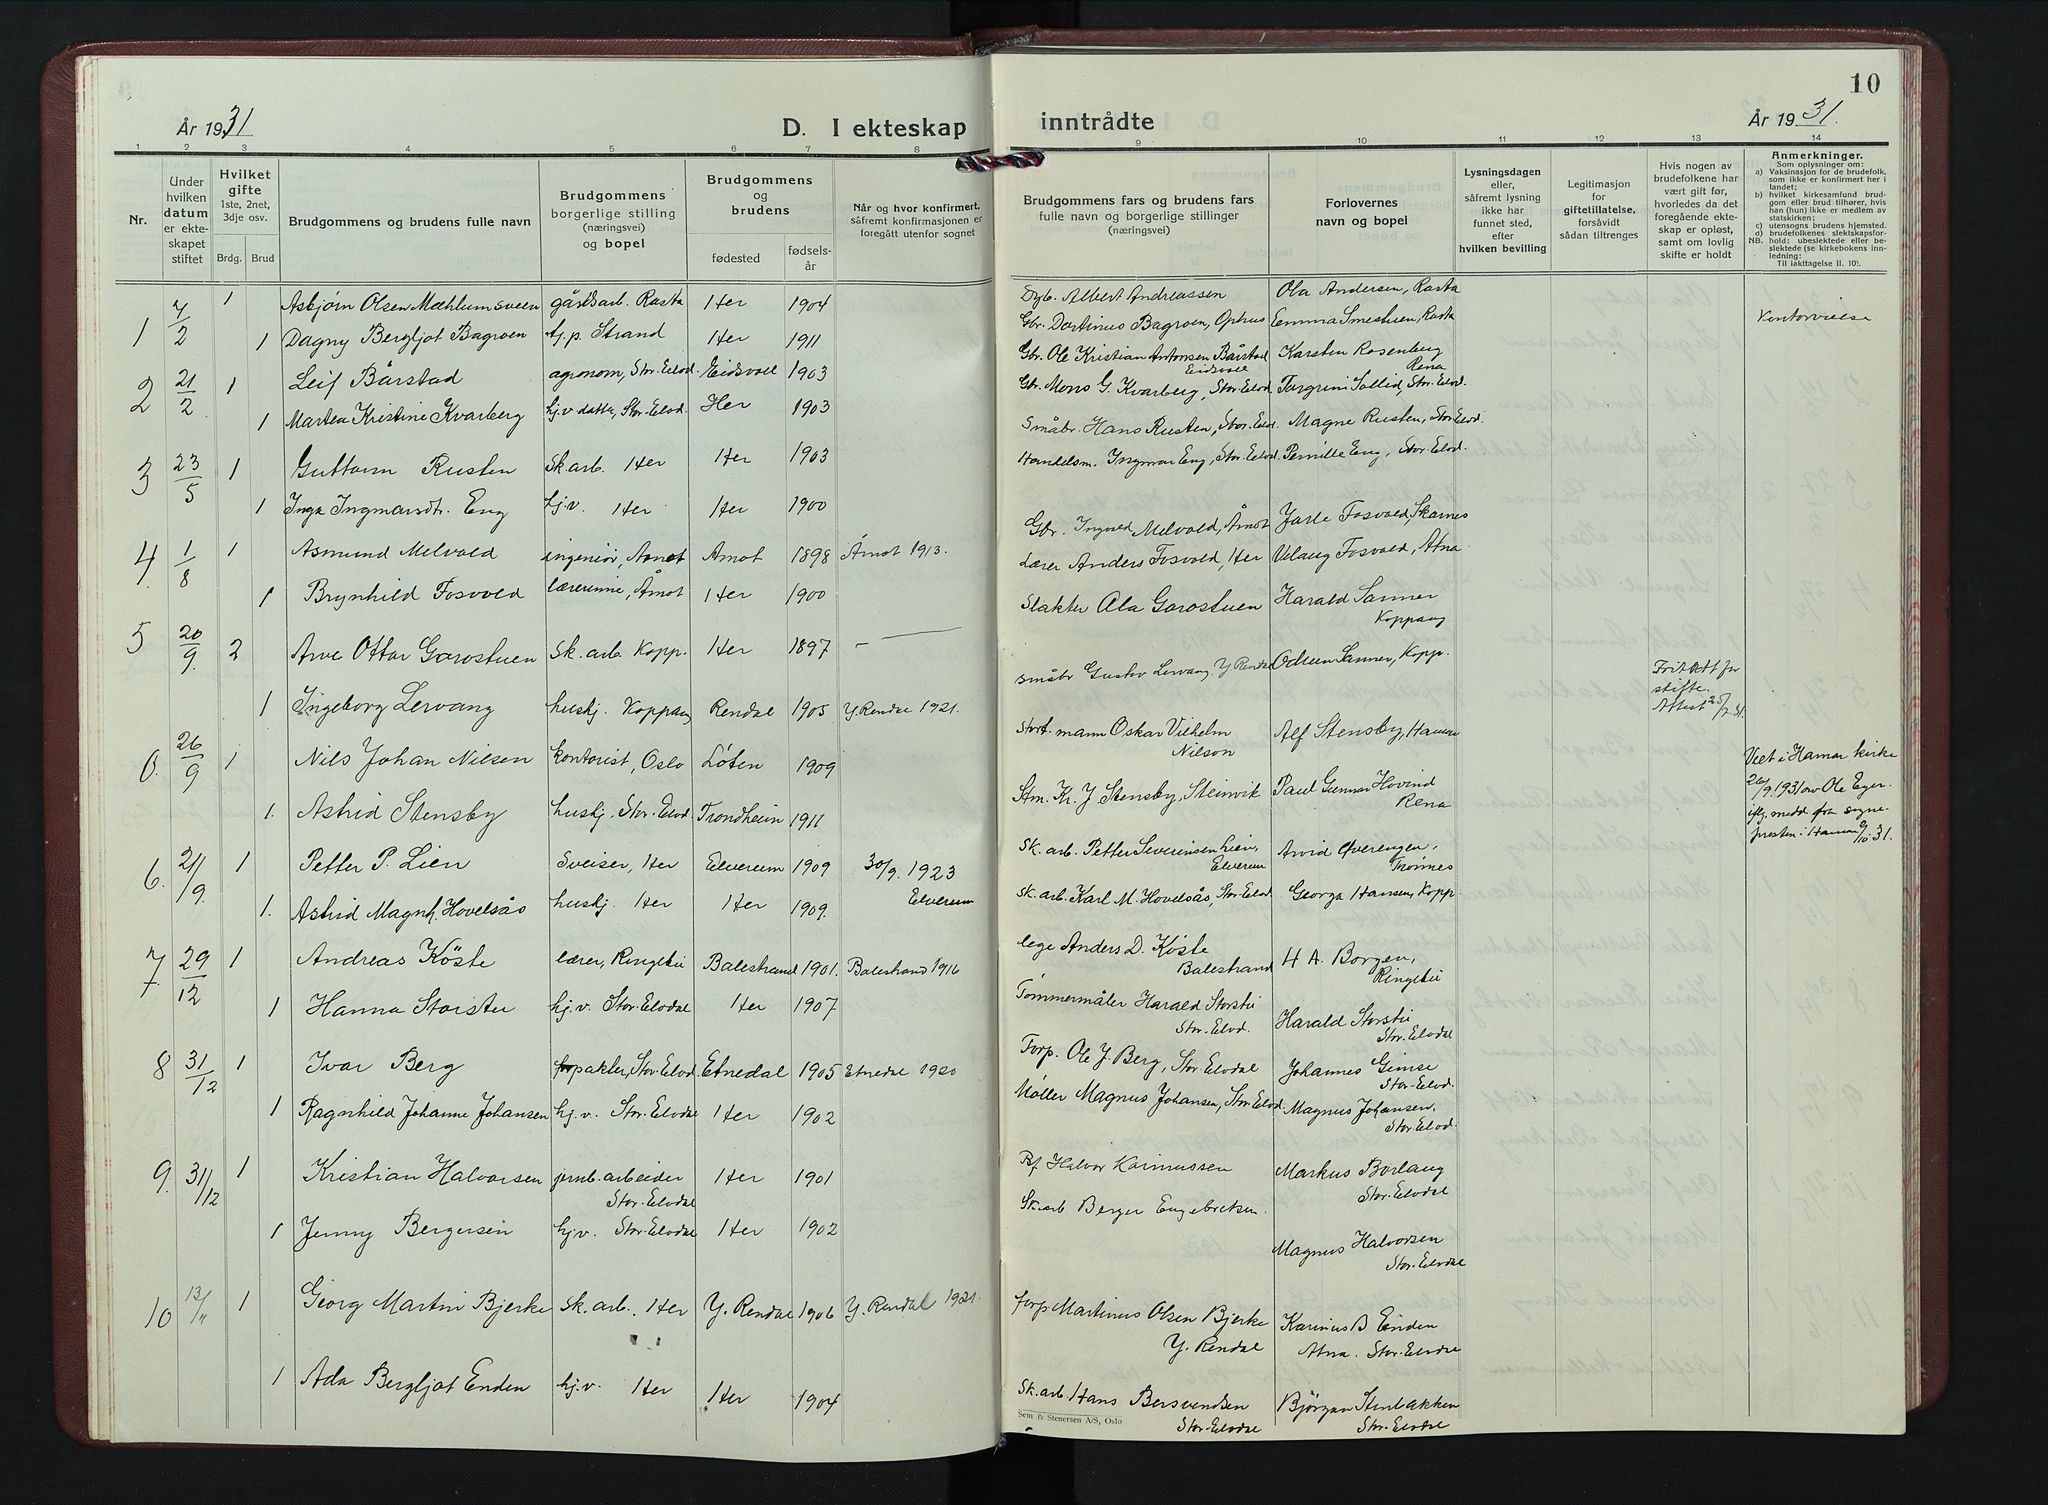 År 1931
D. I ekteskap
1 2 3 4 5 6 7 8
Nr.
Under hvilken datum er ekteskapet stiftet
Hvilket gifte 1ste, 2net, 3dje osv.
Brdg. Brud
Brudgommens og brudens fulle navn
Brudgommens borgerlige stilling (næringsvei) og bopel
Brudgommens og brudens
fødested
fødselsår
Når og hvor konfirmert, såfremt konfirmasjonen er foregått utenfor sognet
1 7/2 1 Asbjørn Olsen Mæhlumsveen gårdsarb. Rasta Her 1904
1 Dagny Bergljot Bagroen tj.p. Strand Her 1911
2 21/2 1 Leif Bårstad agronom, Stor-Elvd. Eidsvoll 1903
1 Martea Kristine Kvarberg hj.v datter, Stor-Elvd. Her 1903
3 23/5 1 Guttorm Rusten Sk.arb. Her Her 1903
1 Inga Ingmarsdtr. Eng hj.v. Her Her 1900
4 1/8 1 Asmund Melvold ingeniør, Åmot Åmot 1898 Åmot 1913.
1 Brynhild Fosvold lærerinne, Åmot Her 1900
5 20/9 2 Arve Ottar Garostuen Sk.arb. Kopp. Her 1897 —
1 Ingeborg Lervang hushj. Koppang Rendal 1905 Y. Rendal 1921.
6. 26/9 1 Nils Johan Nilsen kontorist, Oslo Løten 1909
1. Astrid Stensby huskj. Stor-Elvd. Trondheim 1911
6. 21/9. 1 Petter P. Lien Sveiser, Her Elverum 1909 30/9. 1923 Elverum
1. Astrid Magnh. Hovelsås huskj. Her Her 1909.
7. 29/12 1 Andreas Köste lærer, Ringebu Balestrand 1901. Balestrand 1916
1 Hanna Storstu hj.v. Stor-Elvdal Her 1907
8 31/12 1 Ivar Berg forpakter, Stor-Elvd. Etnedal 1905 Etnedal 1920
1 Ragnhild Johanne Johansen hj.v. Stor-Elvdal Her 1902
9. 31/12 1 Kristian Halvorsen jernb.arbeider Stor-Elvdal Her 1901
1 Jenny Bergersen hj.v. Stor-Elvdal Her 1902
10 1 Georg Martin Bjerke Sk.arb. Her Y. Rendal 1906 Y. Rendal 1921.
1 Ada Bergljot Enden hj.v. Her Her 1904
10
inntrådte
År 1931.
9 10 11 12 13 14
Brudgommens fars og brudens fars fulle navn og borgerlige stillinger
Forlovernes navn og bopel
Lysningsdagen eller, såfremt lysning ikke har funnet sted, efter hvilken bevilling
Legitimasjon for giftetillatelse, forsåvidt sådan tiltrenges
Hvis nogen av brudefolkene har vært gift før, hvorledes da det foregående ekteskap er opløst, samt om lovlig skifte er holdt
Anmerkninger.
Som oplysninger om:
a) Vaksinasjon for de brudefolk, som ikke er konfirmert her i landet;
b) hvilket kirkesamfund brudgom eller brud tilhører, hvis han (hun) ikke er medlem av statskirken;
c) utensogns brudens hjemsted.
d) brudefolkenes slektskapsforhold: ubeslektede eller beslektede (se kirkebokens innledning:
NB. Til iakttagelse II. 10).
Albert Andreassen Ola Andersen, Rasta
Gbr. Dortinus Bagroen, Ophus Emma Smestuen, Rasta Kontorvielse
Gbr. Ole Kristian Antonsen Bårstad Eidsvoll Karsten Rosenberg Rena
Gbr. Mons G. Kvarberg, Stor-Elvd. Torgrim Sollid, Stor-Elvd.
Småbr. Hans Rusten, Stor-Elvd. Magne Rusten, Stor-Elvd.
Handelsm. Ingmar Eng, Stor-Elvd. Pernille Eng, Stor-Elvd.
Gbr. Ingvald Melvold, Åmot Jarle Fosvold, Skarnes
Lærer Anders Fosvold, Her Velaug Fosvold, Atna
Slakter Ola Garostuen Harald Sanner Koppang
småbr Gustav Lervang. Y Rendal Odleen Sanner, Kopp. Fritatt for skifte. Attest
Stort.mann Oskar Vilhelm Nilson Alf Stensby, Hamar
Stm. Kr. J Stensby, Steinvik Paul Gunnar Hovind Rena
Viet i Hamar kirke 26/9.1931 av Ole Eger. iflg. medd. fra sognepresten i Hamar 9/10.31.
Sk. arb. Petter Severinsen Lien, Elverum Arvid Øverengen, Trønnes
Sk. arb. Karl M. Hovelsås, Stor-Elvd. Georga Hansen, Kopp.
lege Anders D. Köste Balestrand H. A. Borgen, Ringebu
Tømmermåler Harald Storstu Stor-Elvd. Harald Storstu Stor-Elvdal
Forp. Ole J. Berg, Stor-Elvdal Johannes Gimse Stor-Elvd.
Møller Magnus Johansen, Stor-Elvd. Magnus Johansen. Stor-Elvd.
Halvor Rasmussen Markus Borlaug Stor-Elvdal
Sk.arb Berger Engebretsen. Magnus Halvorsen Stor-Elvdal
forp. Martinus Olsen Bjerke Y. Rendal Karinus B Enden Atna. Stor-Elvdal
Sk. arb. Hans Bersvendsen Stor-Elvdal Björgan Stenbakken Stor-Elvdal
Sem & Stenersen A/S, Oslo